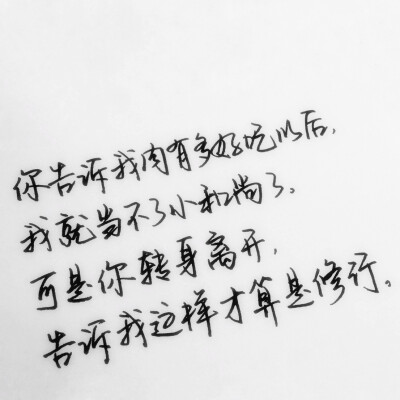 你告诉我肉有多好吃以后,
我就当不了小和尚了。
可是你转身离开,
告诉我这样才算是修行。